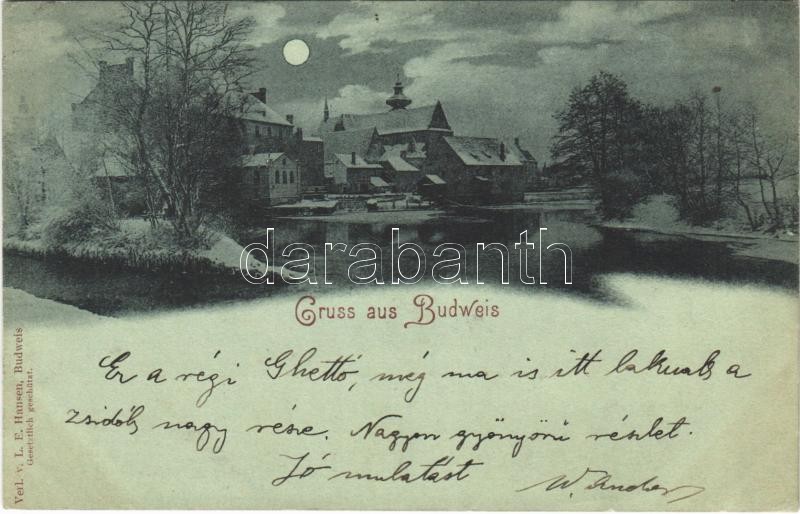 darabanth
Gruss aus Budweis
Verl. v. L. E. Hansen, Budweis
Gesetzlich geschützt.
Ez a régi Ghettó, még ma is itt laknak a
zsidók nagy része. Nagyon gyönyörű részlet.
Jó mulatást
W. Ander